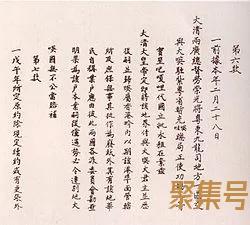 第六款
一前據本年二月二十八日
大清兩廣總督勞崇光將粵東九龍司地方一
與大𠸄駐紮粵省暫充𠸄㖀總局正使功
寶星巴夏禮代國立批永租在案茲
大清大皇帝定即將該地界付與大𠸄大君主並歷
後嗣並歸𠸄屬香港界內以期該港埠面管轄
所及庶保無事其批作為廢紙外其有該地華
民自稱業戶應由彼此兩國各派委員會勘查
明果為該戶本業嗣後倘遇勢必令遷別地大
𠸄國無不公當賠補
第七款
一戊午年所定原約除現定續約或有更張外
聚集号